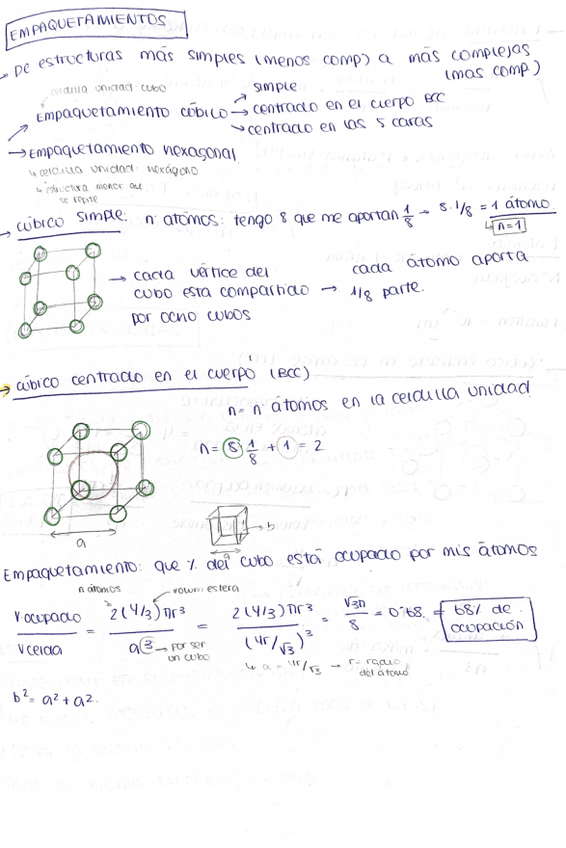 EMPAQUETAMIENTOS
→ De estructuras más simples (menos comp) a más complejas
(mas comp)
celdilla unidad cubo
simple
Empaquetamiento cúbico → centrado en el cuerpo BCC
→ centrado en las 5 caras
→ Empaquetamiento hexagonal
↳ celdilla unidad: hexágono
↳ estructura menor que
se repite
→ cúbico simple: nº átomos: tengo 8 que me aportan 1/8 → 8·1/8 = 1 átomo
↳ n=1
→ cada vértice del
cubo esta compartido
por ocho cubos
→ cada átomo aporta
1/8 parte.
→ cúbico centrado en el cuerpo (BCC)
n = nº átomos en la celdilla unidad
n = 8 1/8 + 1 = 2
a
b
a
Empaquetamiento: que % del cubo está ocupado por mis átomos
n átomos
volum esfera
V.ocupado / V celda = 2(4/3)πr³ / a³ = 2(4/3)πr³ / (4r/√3)³ = √3π / 8 = 0'68 = 68% de ocupación
→ por ser
un cubo
↳ a = 4r/√3 → r = radio
del átomo
b² = a² + a².